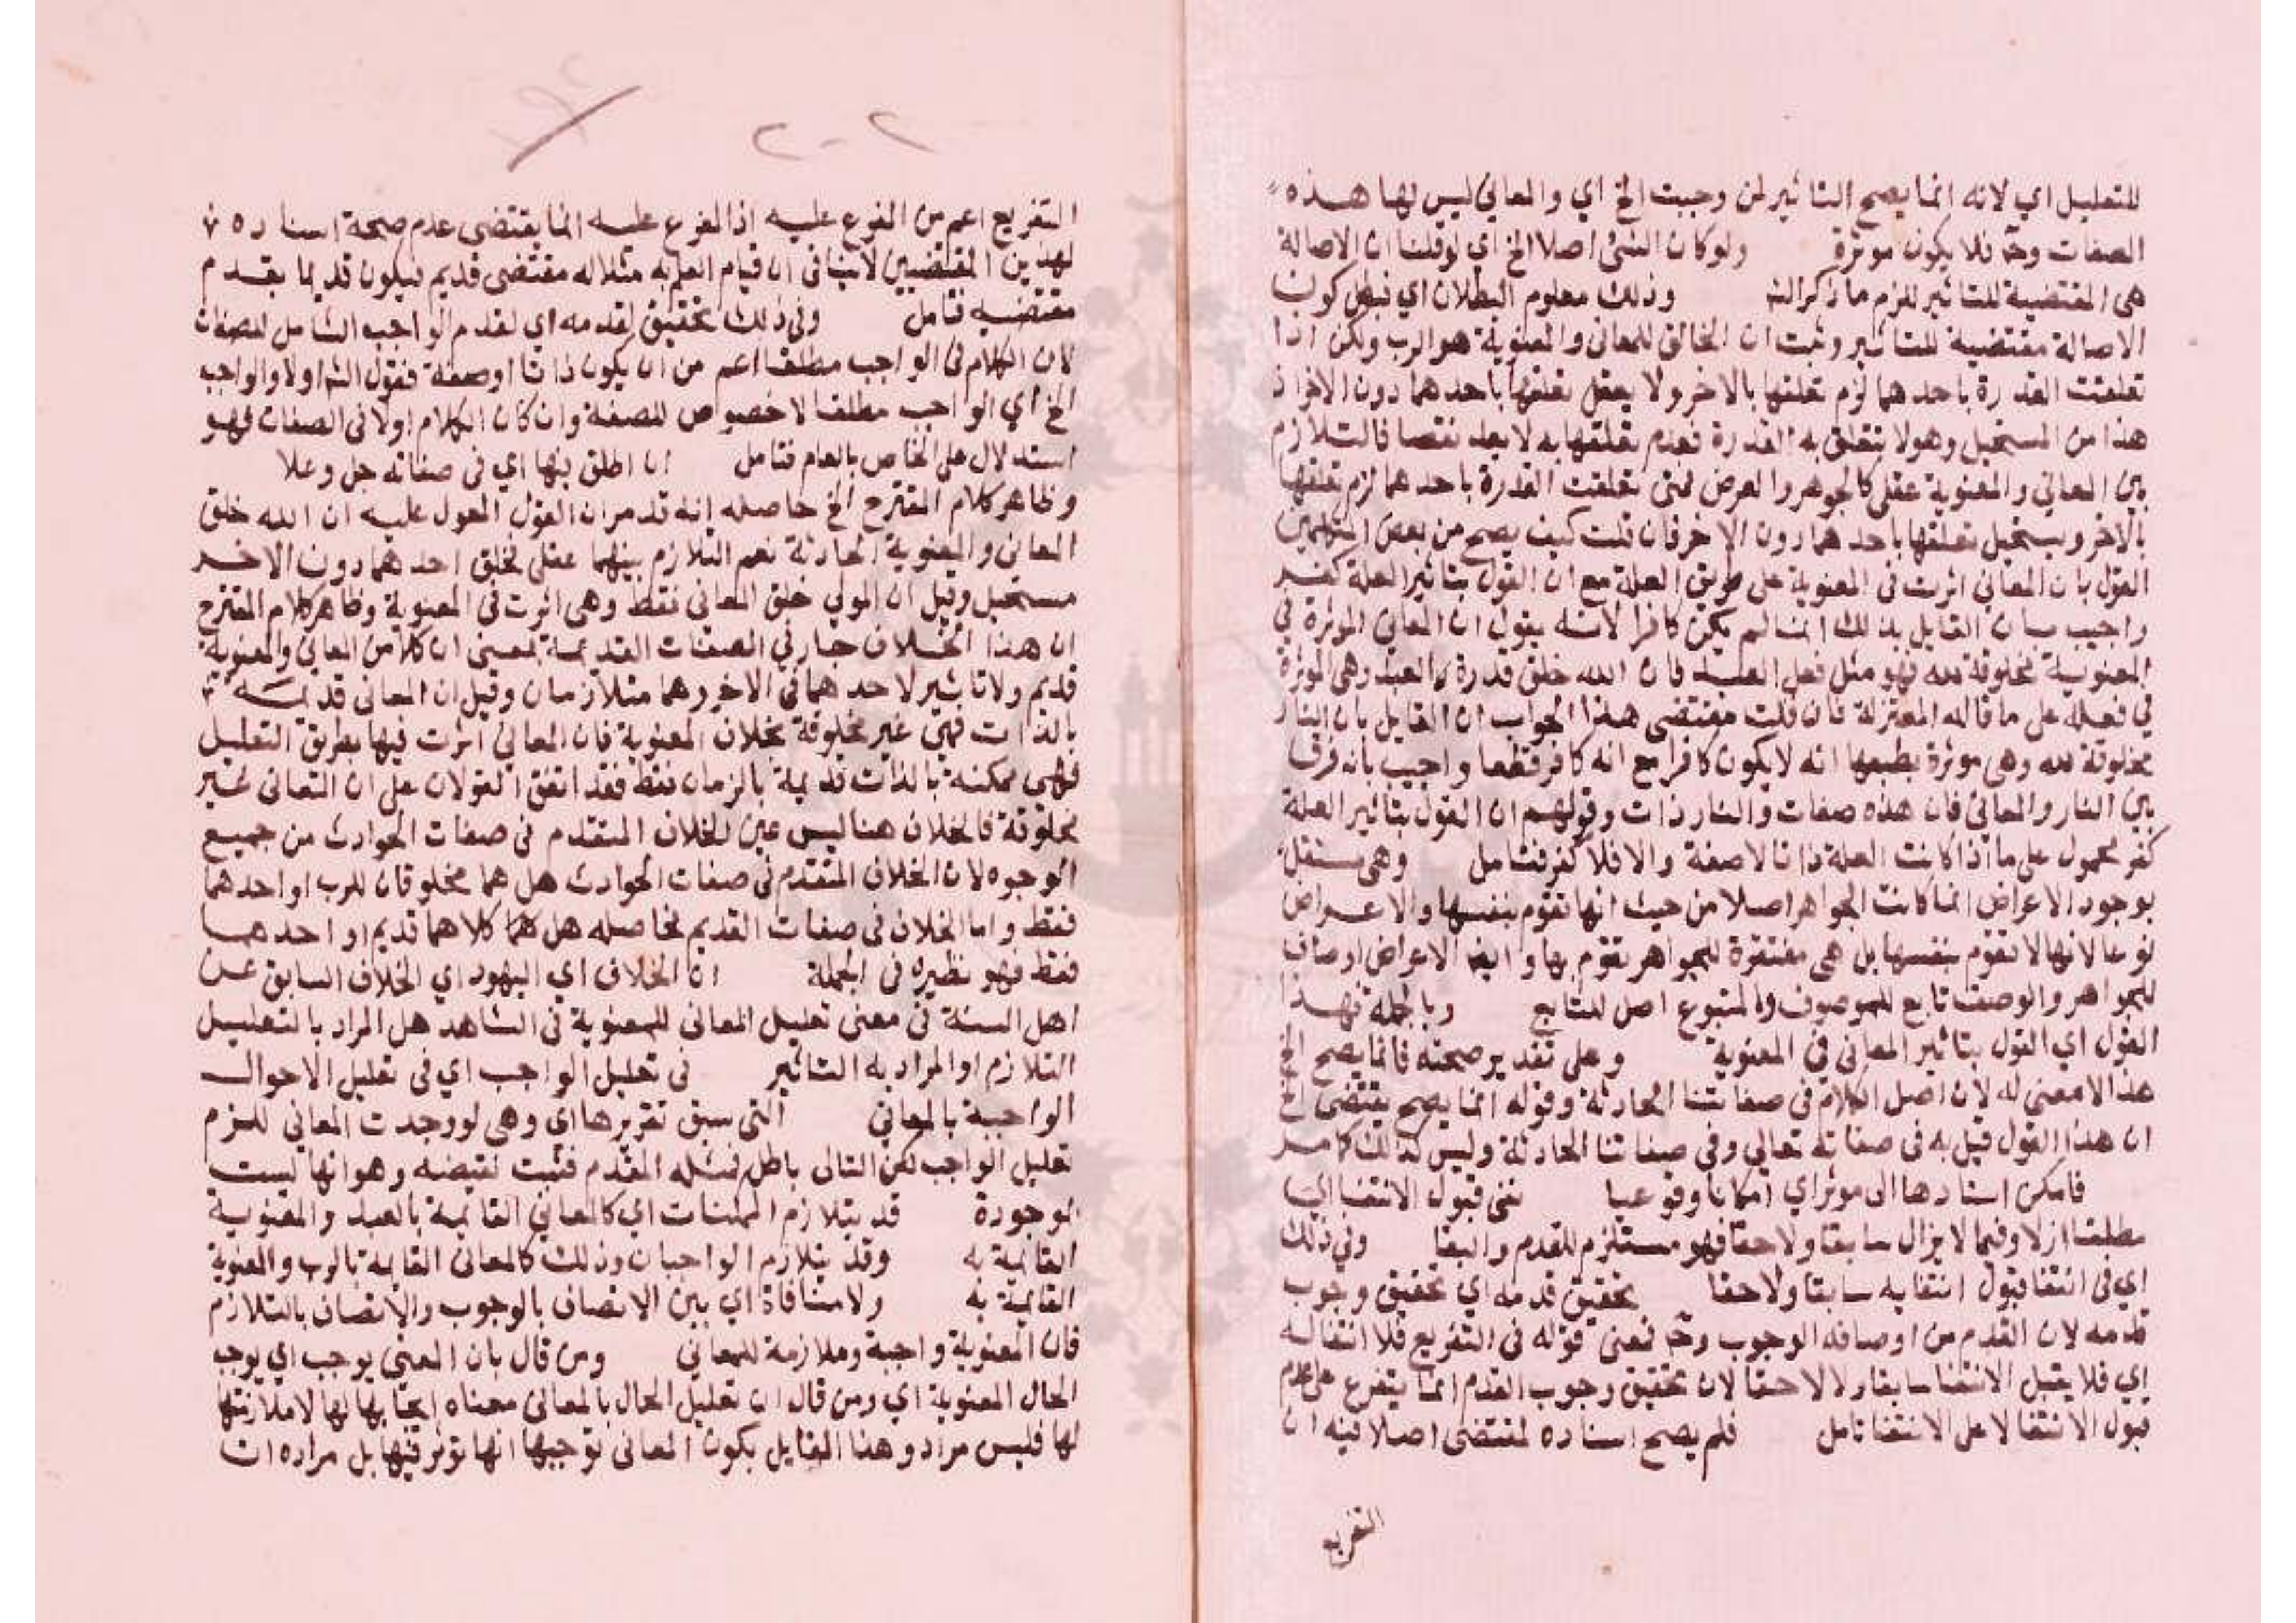 للتعليل اي لانه انما يصح التاثير لمن وجبت الخ اي والمعاني ليس لها هذه
الصفات وح فلا يكون موثرة ولو كان الشئ اصلا الخ اي لو قلنا ان الاصالة
هى المقتضية للتاثير للزم ما ذكر الش وذلك معلوم البطلان اي فبطل كون
الاصالة مقتضية للتاثير وثبت ان الخالق للمعاني والمعنوية هو الرب ولكن اذا
تعلقت القدرة باحدهما لزم تعلقها بالاخر ولا يعقل تعلقها باحدهما دون الاخر اذ
هذا من المستحيل وهو لا تتعلق به القدرة فعدم تعلقها به لا يعد نقصا فالتلازم
بين المعاني والمعنوية عقلي كالجوهر والعرض فمتى تعلقت القدرة باحدهما لزم تعلقها
بالاخر ويستحيل تعلقها باحدهما دون الاخر فان قلت كيف يصح من بعض المتكلمين
القول بان المعاني اثرت فى المعنوية على طريق العلة مع ان القول بتاثير العلة كفر
واجيب بان القايل بذلك انما لم يكن كافرا لانه يقول ان المعاني الموثرة في
المعنوية مخلوقة لله فهو مثل فعل العبد فان الله خلق قدرة العبد وهى الموثرة
في فعله على ما قاله المعتزلة فان قلت مقتضى هذا الجواب ان القايل بان النار
مخلوقة لله وهى موثرة بطبعها انه لا يكون كافرا مع انه كافر قطعا واجيب بانه فرق
بين النار والمعاني فان هذه صفات والنار ذات وقولهم ان القول بتاثير العلة
كفر محمول على ما اذا كانت العلة ذاتا لا صفة والا فلا كفر فتامل وهى مستقلة
بوجود الاعراض انما كانت الجواهر اصلا من حيث انها تقوم بنفسها والاعراض
نوعا لانها لا تقوم بنفسها بل هى مفتقرة للجواهر تقوم بها وايض الاعراض اوصاف
للجواهر والوصف تابع للموصوف والمتبوع اصل للتابع وبالجملة فهذا
القول اي القول بتاثير المعاني في المعنوية وعلى تقدير صحته فانما يصح الخ
هذا لا معنى له لان اصل الكلام في صفاتنا الحادثة وقوله انما يصح يقتضى الخ
ان هذا القول قيل به فى صفاته تعالي وفي صفاتنا الحادثة وليس كذلك كما مر
فامكن اسنادها الى موثر اي امكانا وقوعيا نفى قبول الانتفا اليا
مطلقا ازلا وفيما لا يزال سابقا ولاحقا فهو مستلزم للقدم والبقا وفي ذلك
اي فى انتفا قبول انتفايه سابقا ولاحقا تحقيق قدمه اي تحقيق وجوب
قدمه لان القدم من اوصافه الوجوب وح فمعنى قوله فى التفريع فلا انتفا له
اي فلا يقبل الانتفا سابقا ولا لاحقا لان تحقيق وجوب القدم انما يتفرع على عدم
قبول الانتفا لا على الانتفا تامل فلم يصح اسناده لمقتضى اصلا فيه ان
التفريع
٢٠٢
التفريع اعم من المفرع عليه اذ المفرع عليه انما يقتضى عدم صحة اسناده
لهذين المقتضيين لا ينافى ان قيام العلم به مثلا له مقتضى قديم فيكون قديما بقدم
مقتضيه تامل وفي ذلك تحقيق لقدمه اي لقدم الواجب الشامل للصفات
لان الكلام فى الواجب مطلقا اعم من ان يكون ذاتا او صفة فقول الش اولا والواجب
الخ اي الواجب مطلقا لا خصوص للصفة وان كان الكلام اولا فى الصفات فهو
استدلال على الخاص بالعام فتامل ان اطلق بنها اي فى صفاته جل وعلا
وظاهر كلام المقترح الخ حاصله انه قد مر ان القول المعول عليه ان الله خلق
المعاني والمعنوية الحادثة نعم التلازم بينهما عقلى فخلق احدهما دون الاخر
مستحيل وقيل ان المولي خلق المعاني فقط وهى اثرت فى المعنوية وظاهر كلام المقترح
ان هذا الخلاف جار في الصفات القديمة بمعنى ان كلا من المعاني والمعنوية
قديم ولا تاثير لاحدهما فى الاخر وهما متلازمان وقيل ان المعاني قديمة
بالذات فهى غير مخلوقة بخلاف المعنوية فان المعاني اثرت فيها بطريق التعليل
فهى ممكنة بالذات قديمة بالزمان فقط فقد اتفق القولان على ان المعاني غير
مخلوقة فالخلاف هنا ليس عين الخلاف المتقدم فى صفات الحوادث من جميع
الوجوه لان الخلاف المتقدم في صفات الحوادث هل هما مخلوقان للرب او احدهما
فقط واما الخلاف فى صفات القديم فحاصله هل هما كلاهما قديم او احدهما
فقط فهو نظيره فى الجملة ان الخلاف اي اليهود اي الخلاف السابق عن
اهل السنة فى معنى تعليل المعاني للمعنوية فى الشاهد هل المراد بالتعليل
التلازم او المراد به التاثير فى تعليل الواجب اي فى تعليل الاحوال
الواجبة بالمعاني التى سبق تقريرها اي وهى لو وجدت المعاني للزم
تعليل الواجب لكن التالى باطل فمثله المقدم فثبت نقيضه وهو انها ليست
موجودة قد يتلازم الممكنات اي كالمعاني القايمة بالعبد والمعنوية
القايمة به وقد يتلازم الواجبان وذلك كالمعاني القايمة بالرب والمعنوية
القايمة به ولا منافاة اي بين الاتصاف بالوجوب والاتصاف بالتلازم
فان المعنوية واجبة وملازمة للمعاني ومن قال بان المعنى يوجب اي يوجب
الحال المعنوية اي ومن قال ان تعليل الحال بالمعاني معناه ايجابها لها لا ملازمتها
لها فليس مراد وهذا القايل بكون المعاني توجبها انها توثر فيها بل مراده ان